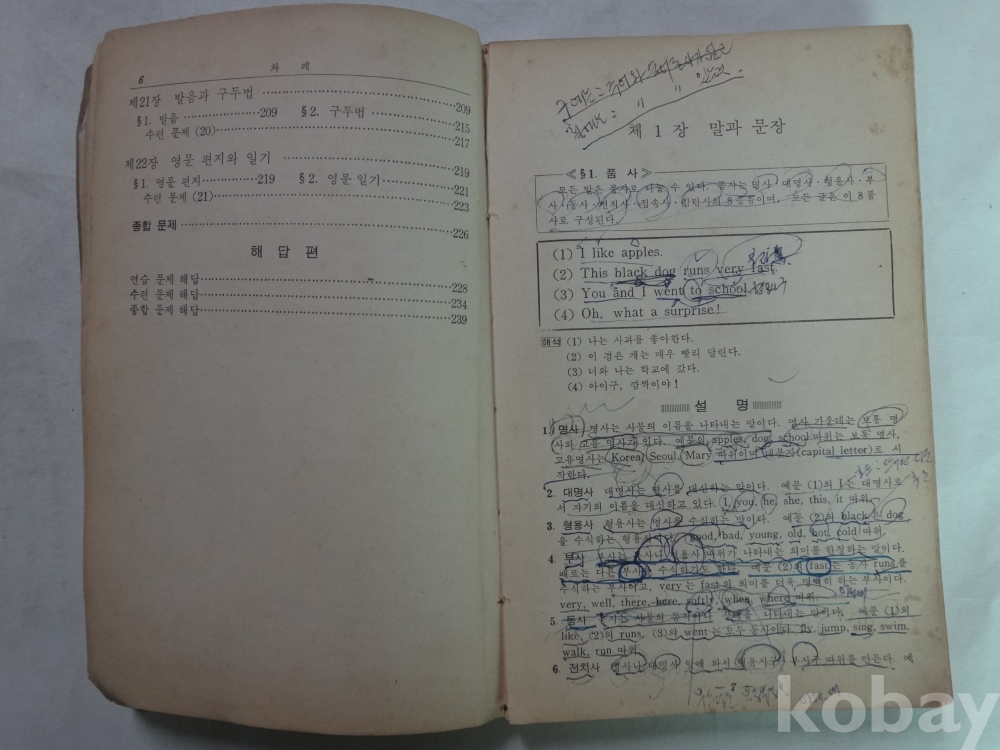 6 차 례
제21장 발음과 구두법 209
§1. 발음 209 §2. 구두법 215
수련 문제 (20) 217
제22장 영문 편지와 일기 219
§1. 영문 편지 219 §2. 영문 일기 221
수련 문제 (21) 223
종합 문제 226
해 답 편
연습 문제 해답 228
수련 문제 해답 234
종합 문제 해답 239
제 1 장 말과 문장
≪§1. 품 사≫
모든 말은 품사로 나눌 수 있다. 품사는 명사·대명사·형용사·부
사·동사·전치사·접속사·감탄사의 8종류이며, 모든 글은 이 8품
사로 구성된다.
(1) I like apples.
(2) This black dog runs very fast.
(3) You and I went to school.
(4) Oh, what a surprise!
해석 (1) 나는 사과를 좋아한다.
(2) 이 검은 개는 매우 빨리 달린다.
(3) 너와 나는 학교에 갔다.
(4) 아이구, 깜짝이야!
설 명
1. 명사 명사는 사물의 이름을 나타내는 말이다. 명사 가운데는 보통 명
사와 고유 명사가 있다. 예문의 apples, dog, school 따위는 보통 명사,
고유명사는 Korea, Seoul, Mary 따위이며 대문자(capital letter)로 시
작한다.
2. 대명사 대명사는 명사를 대신하는 말이다. 예문 (1)의 I는 대명사로
서 자기의 이름을 대신하고 있다. I, you, he, she, this, it 따위.
3. 형용사 형용사는 명사를 수식하는 말이다. 예문 (2)의 black은 dog
을 수식하는 형용사이다. good, bad, young, old, hot, cold 따위.
4. 부사 부사는 동사나 형용사 따위가 나타내는 의미를 한정하는 말이다.
때로는 다른 부사를 수식하기도 한다. 예문 (2)의 fast는 동사 runs를
수식하는 부사이고, very는 fast의 의미를 더욱 명백히 하는 부사이다.
very, well, there, here, softly, when, where 따위.
5. 동사 동사는 사물의 동작이나 상태를 나타내는 말이다. 예문 (1)의
like, (2)의 runs, (3)의 went는 모두 동사이다. fly, jump, sing, swim,
walk, run 따위.
6. 전치사 명사나 대명사 앞에 와서 형용사구, 부사구 따위를 만든다. 예
kobay